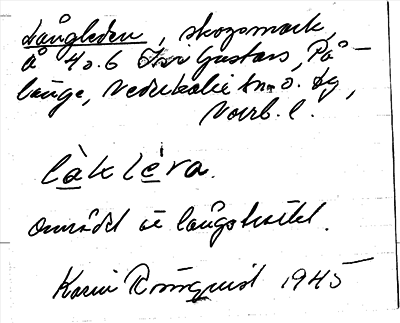 Långleden, skogsmark,
å 40.6 Gustavs, På-
länge, Nederkalix sn o. dg,
Norrb. l.
làkléva.
området är långsträckt.
Karin Rönnquist 1945